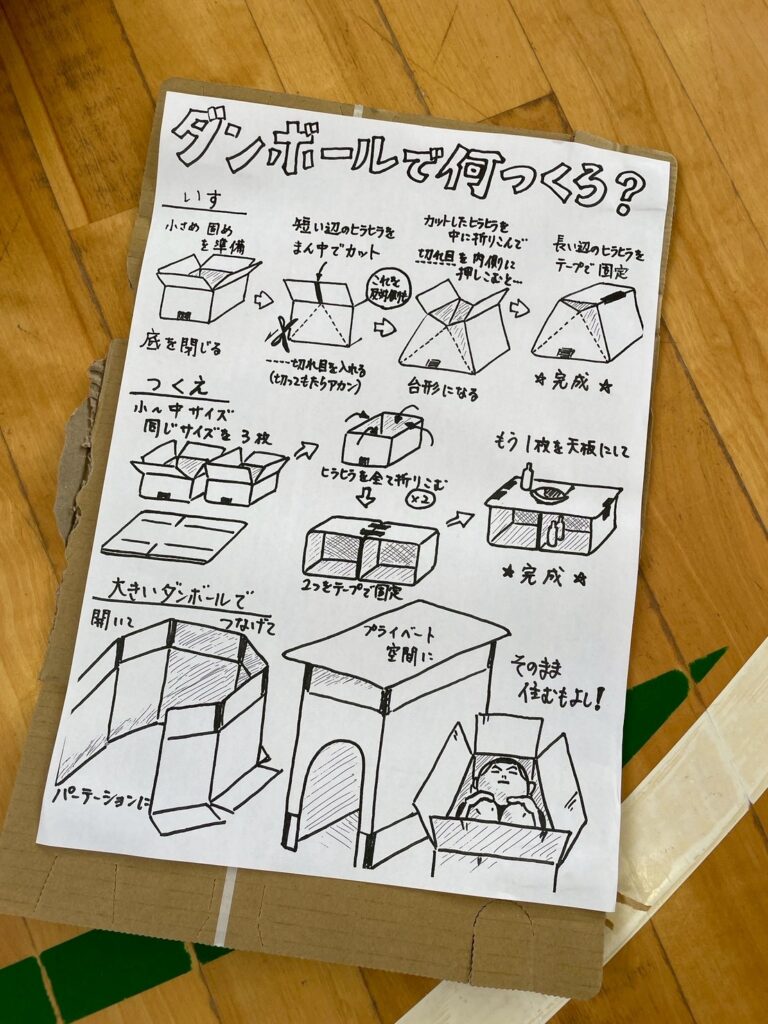 ダンボールで何つくろ？
いす
小さめ 固め
を準備
底を閉じる
短い辺のヒラヒラを
まん中でカット
これを
反対側も
----切れ目を入れる
(切ってもたらアカン)
カットしたヒラヒラを
中に折りこんで
切れ目を内側に
押しこむと…
台形になる
長い辺のヒラヒラを
テープで固定
☆完成☆
つくえ
小〜中サイズ
同じサイズを3枚
ヒラヒラを全て折りこむ
×2
2つをテープで固定
もう1枚を天板にして
☆完成☆
大きいダンボールで
開いて
つなげて
パーテーションに
プライベート
空間に
そのまま
住むもよし！